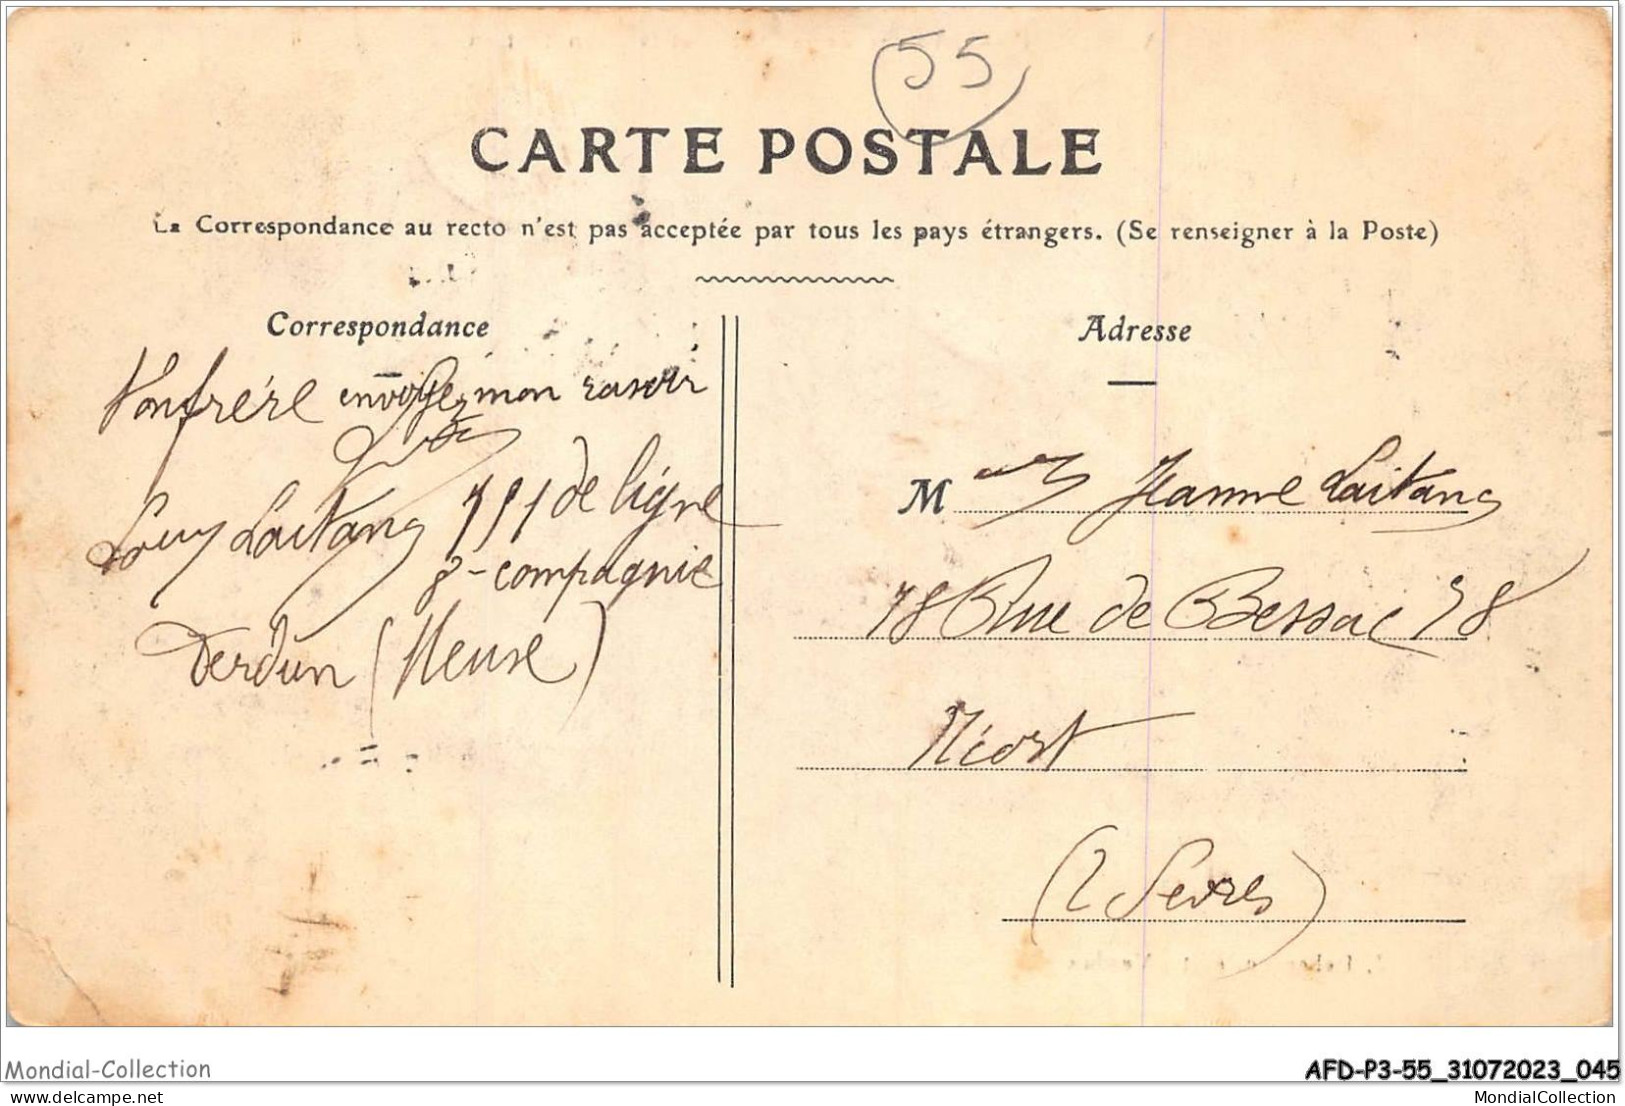 55
CARTE POSTALE
La Correspondance au recto n'est pas acceptée par tous les pays étrangers. (Se renseigner à la Poste)
Correspondance
Adresse
Ton frère envoyez mon rasoir
Louy Laitang 151 de ligne
8 - compagnie
Verdun (Meuse)
M elle Jeanne Laitang
78 Rue de Bessac 78
Niort
(2 Sevres)
Mondial-Collection
AFD-P3-55_31072023_045
mondial-collection.com
MondialCollection